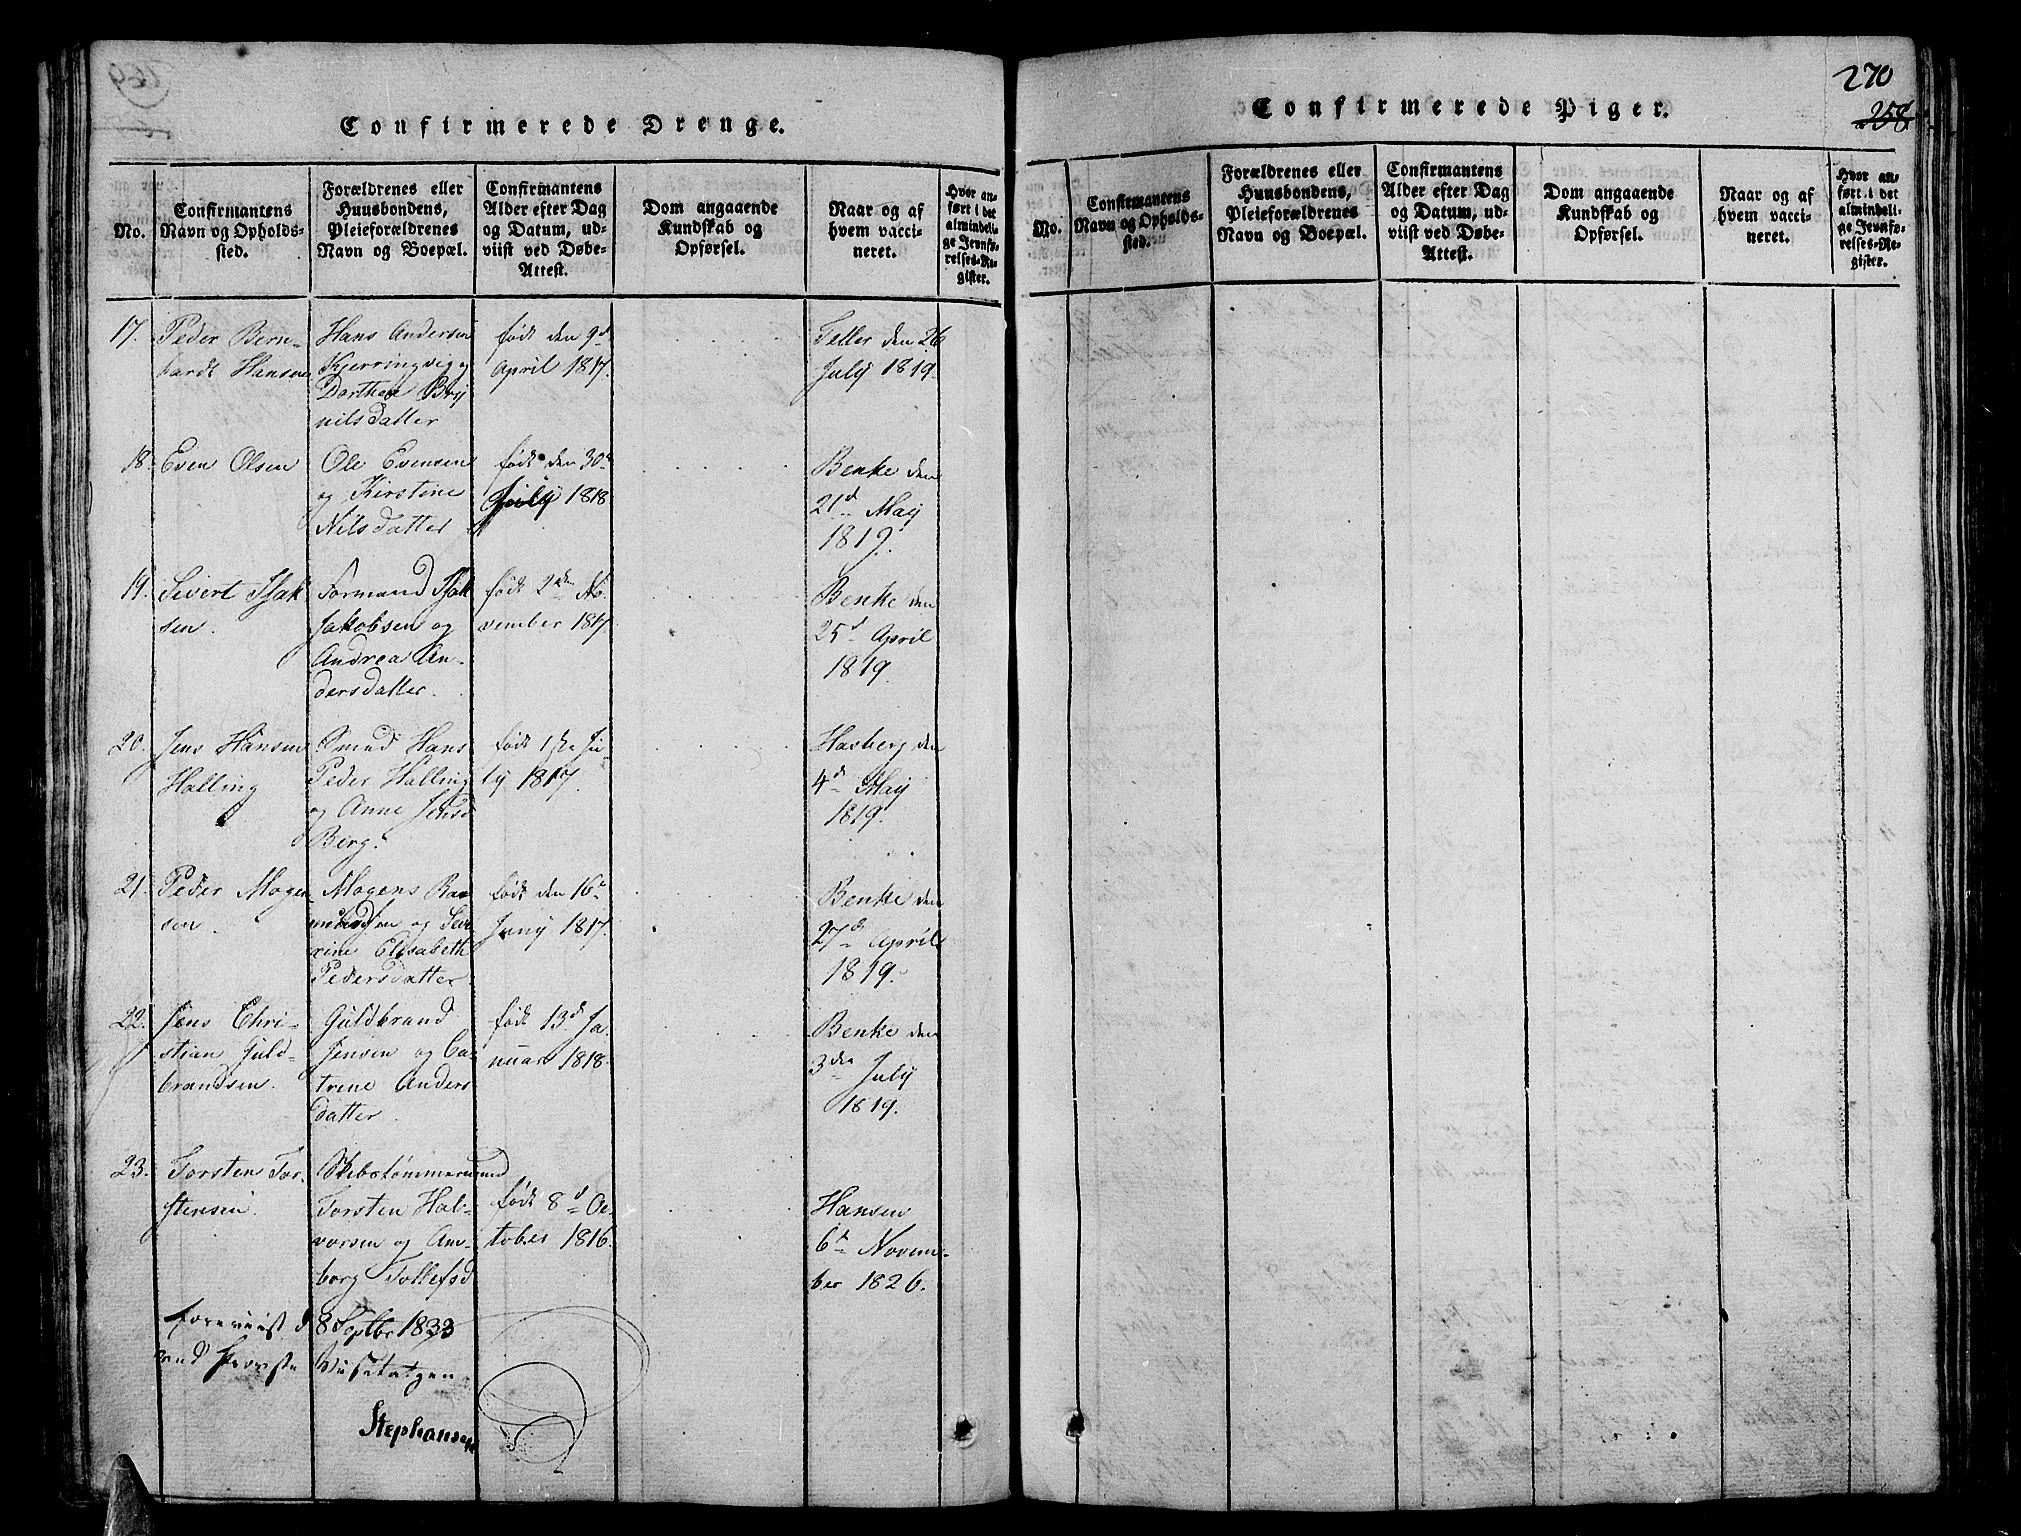 Confirmerede Drenge.
No.
Confirmantens
Navn og Opholds-
sted.
Forældrenes eller
Huusbondens,
Pleieforældrenes
Navn og Boepæl.
Confirmantens
Alder efter Dag
og Datum, ud-
viist ved Døbe-
Attest.
Dom angaaende
Kundskab og
Opførsel.
Naar og af
hvem vacci-
neret.
Hvor an-
ført i det
almindeli-
ge Jevnfø-
relses-Re-
gister.
17.
Peder Bern-
hardt Hansen
Hans Andersen
Kjerringvig og
Dorthea Bryn
nilsdatter
født den 9d
April 1817.
Teller den 26
July 1819.
18.
Even Olsen
Ole Evensen
og Kirstine
Nilsdatter
født den 30
July 1818
Benke den
21d May
1819.
19.
Sivert Isak
sen.
Formand Isak
Jakobsen og
Andrea An-
dersdatter.
født 2den No
vember 1817
Benke den
25d April
1819.
20.
Jens Hansen
Halling
Smed Hans
Peder Halling
og Anne Jensd
Berg.
født 1ste Ju
ly 1817.
Hasberg den
4d May
1819.
21.
Peder Mogen
sen
Mogens
og
rine Elisabeth
Pedersdatter
født den 16d
Juny 1817.
Benke den
27d April
1819.
22.
Jens Chri-
stian Guld-
brandsen.
Guldbrand
Jensen og Ca-
trine Anders
datter.
født 13d Ja
nuar 1818.
Benke den
3die July
1819.
23.
Torsten Tor-
stensen.
Skibstømmermand
Torsten Hal-
vorsen og Am-
borg Tollefsd
født 8d Oc-
tober 1816.
Hansen
6d Novem-
ber 1826.
foreviist d 8 Septbr 1833
ved Provste Visitatzen
Stephansen
270
258
Confirmerede Piger.
No.
Confirmantens
Navn og Opholds-
sted.
Forældrenes eller
Huusbondens,
Pleieforældrenes
Navn og Boepæl.
Confirmantens
Alder efter Dag
og Datum, ud-
viist ved Døbe-
Attest.
Dom angaaende
Kundskab og
Opførsel.
Naar og af
hvem vacci-
neret.
Hvor an-
ført i det
almindeli-
ge Jevnfø-
relses-Re-
gister.